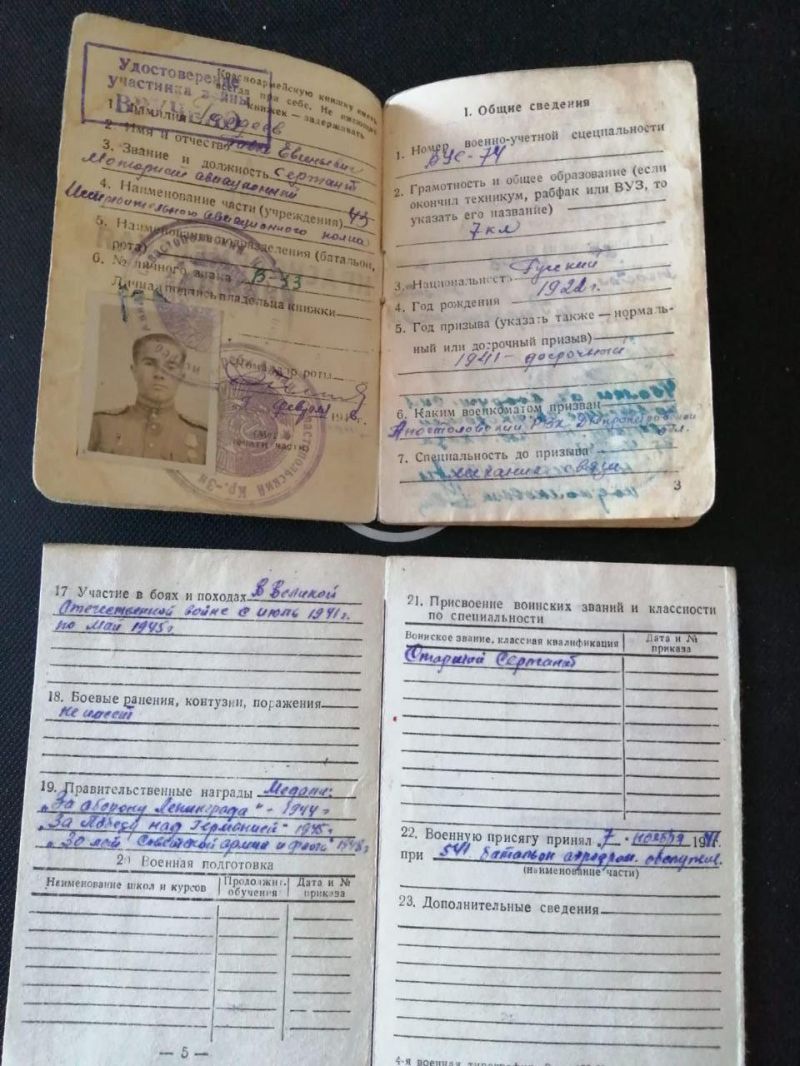 Удостоверение
участника войны
Вручено
Красноармейскую книжку иметь
всегда при себе. Не имеющих
книжек — задерживать.
1. Фамилия
2. Имя и отчество Евгеньевич
3. Звание и должность Сержант
Моторист авиационный
4. Наименование части (учреждения) 43
Истребительного авиационного полка
5. Наименование подразделения (батальон,
рота)
6. № личного знака В-33
Личная подпись владельца книжки
Командир роты
февраля 194
(Место
печати части)
1. Общие сведения
1. Номер военно-учетной специальности
ВУС-74
2. Грамотность и общее образование (если
окончил техникум, рабфак или ВУЗ, то
указать его название)
7 кл
3. Национальность Русский
4. Год рождения 1922 г.
5. Год призыва (указать также — нормаль-
ный или досрочный призыв)
1941 - досрочный
6. Каким военкоматом призван
Апостоловский РВК Днепропетровской
обл.
7. Специальность до призыва
механик связи
3
17 Участие в боях и походах В Великой
Отечественной войне с июль 1941 г.
по май 1945 г
18. Боевые ранения, контузии, поражения
не имеет
19. Правительственные награды Медали:
„За оборону Ленинграда" - 1944 г
„За Победу над Германией" 1945 г
„30 лет Советской армии и флота" 1948 г
20 Военная подготовка
Наименование школ и курсов
Продолжит. обучения
Дата и № приказа
— 5 —
21. Присвоение воинских званий и классности
по специальности
Воинское звание, классная квалификация
Дата и № приказа
Старший Сержант
22. Военную присягу принял 7 ноября 1941
при 541 батальон аэродром. обслужив.
(наименование части)
23. Дополнительные сведения
4-я военная типография